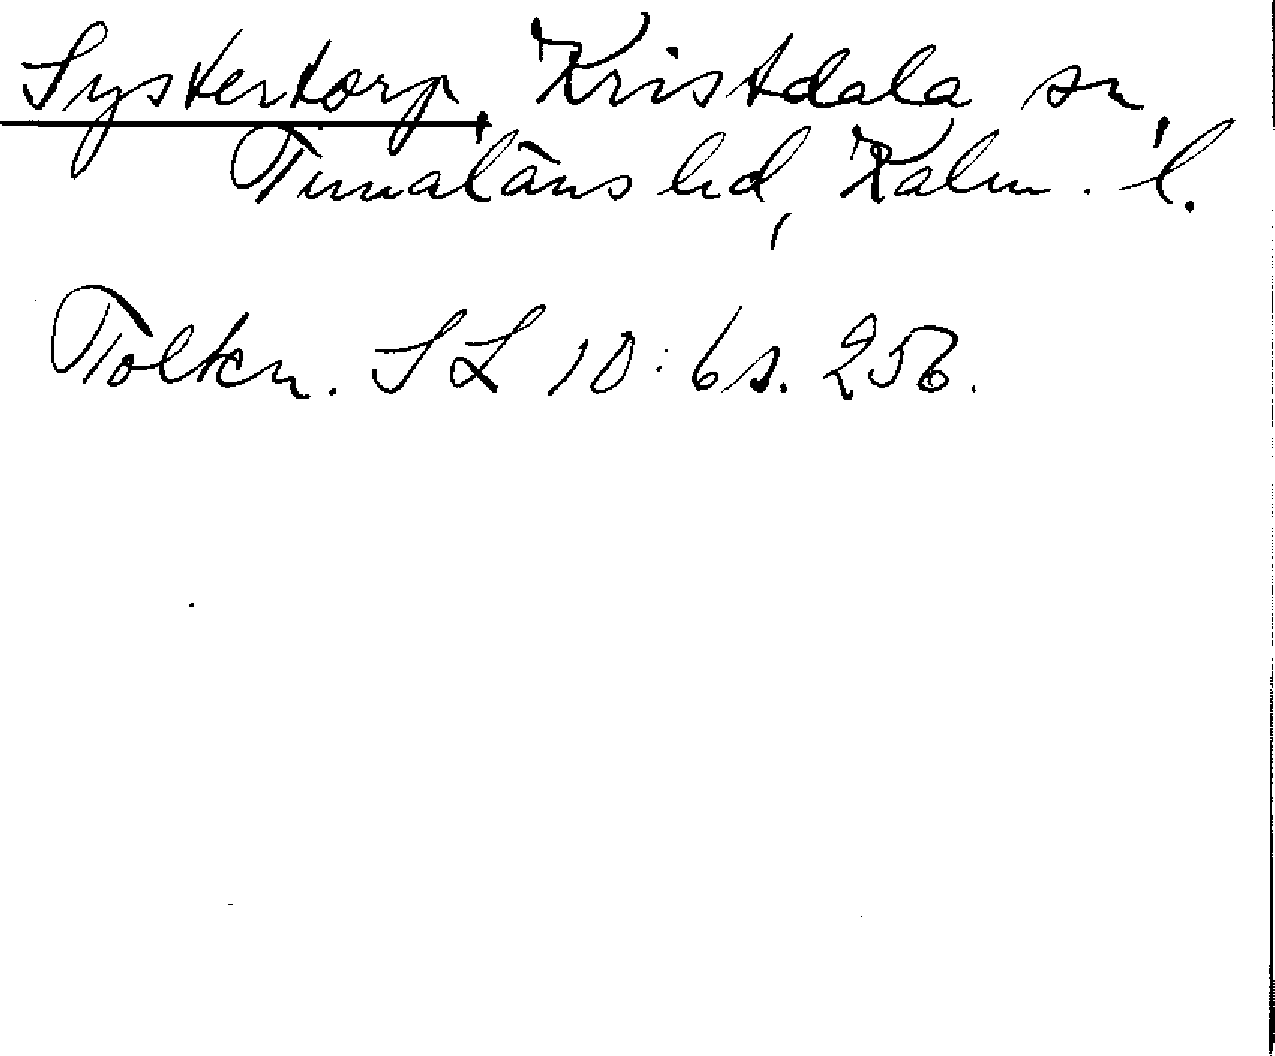 Systertorp, Kristdala sn,
Tunaläns hd, Kalm. l.
Tolkn. SL 10:6 s. 256.